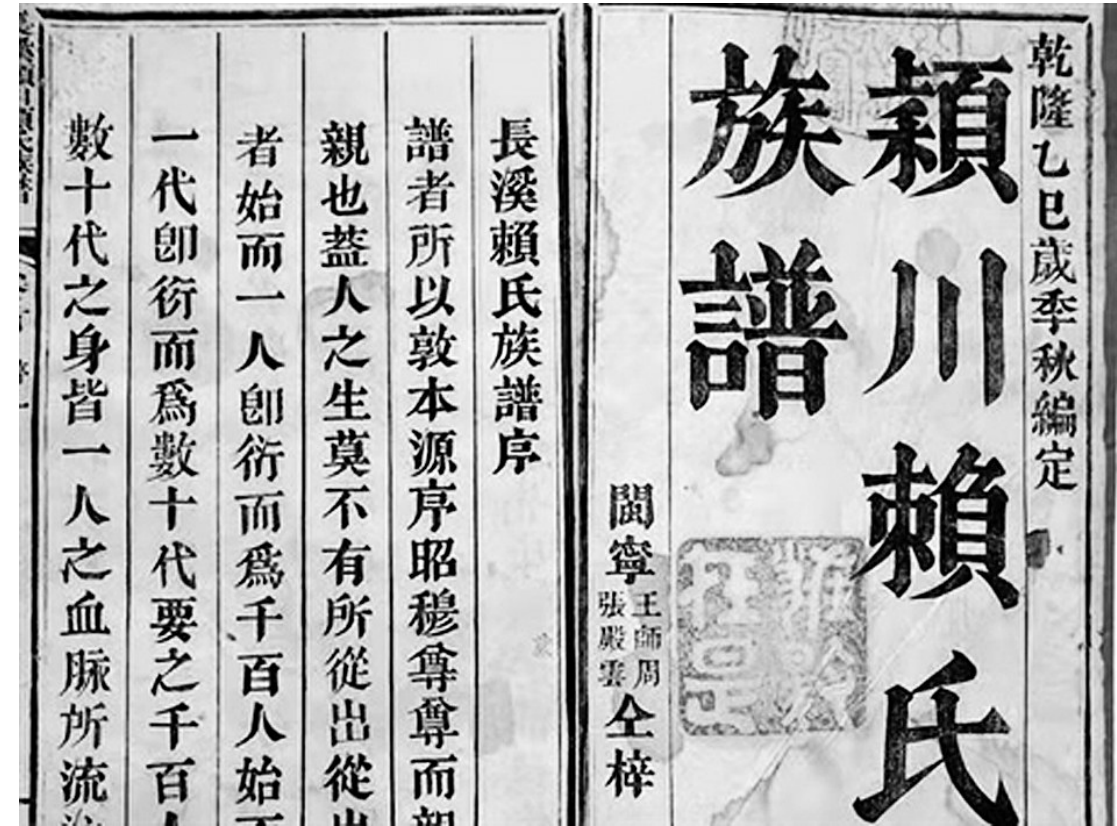 乾隆乙巳歲季秋編定
潁川賴氏
族譜
閩寧
王師周
張殿雲
仝梓
長溪賴氏族譜序
譜者所以敦本源序昭穆尊尊而親
親也葢人之生莫不有所從出從出
者始而一人卽衍而爲千百人始而
一代卽衍而爲數十代要之千百人
數十代之身皆一人之血脉所流